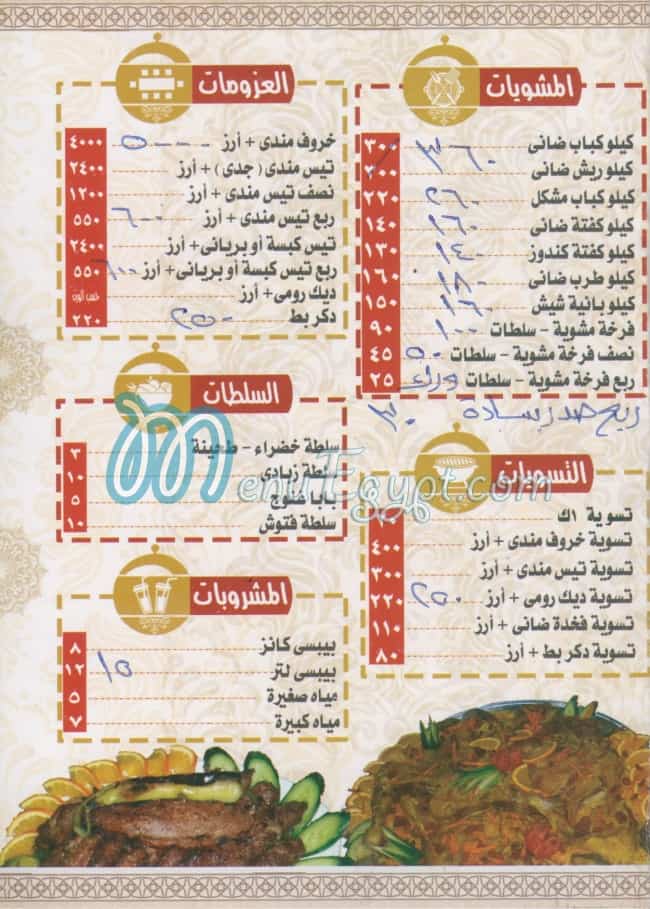 المشويات
كيلو كباب ضانى ٣٠٠ ٣٦٠
كيلو ريش ضانى ٣٠٠
كيلو كباب مشكل ٢٢٠ ٢٦٠
كيلو كفتة ضانى ١٤٠
كيلو كفتة كندوز ١٣٠
كيلو طرب ضانى ١٦٠ ١٨٠
كيلو بانية شيش ١٥٠
فرخة مشوية - سلطات ٩٠ ١٠٠
نصف فرخة مشوية - سلطات ٤٥ ٥٠
ربع فرخة مشوية - سلطات ٢٥ ورك
ربع صدر سادة ٣٠
التسويات
تسوية ١ك
تسوية خروف مندى + أرز ٤٠٠
تسوية تيس مندى + أرز ٣٠٠
تسوية ديك رومى + أرز ٢٢٠ ٢٥٠
تسوية فخدة ضانى + أرز ١١٠
تسوية دكر بط + أرز ٨٠
العزومات
خروف مندى + أرز ٤٠٠٠ ٥٠٠٠
تيس مندى (جدى) + أرز ٢٤٠٠
نصف تيس مندى + أرز ١٢٠٠
ربع تيس مندى + أرز ٥٥٠ ٦٠٠
تيس كبسة أو بريانى + أرز ٢٤٠٠
ربع تيس كبسة أو بريانى + أرز ٥٥٠ ٦٠٠
ديك رومى + أرز
دكر بط ٢٢٠ ٢٥٠
السلطات
سلطة خضراء - طحينة ٣
سلطة زبادى ١٠
بابا غنوج ٥
سلطة فتوش ١٠
المشروبات
بيبسى كانز ٨
بيبسى لتر ١٢ ١٥
مياه صغيرة ٥
مياه كبيرة ٧
MenuEgypt.com